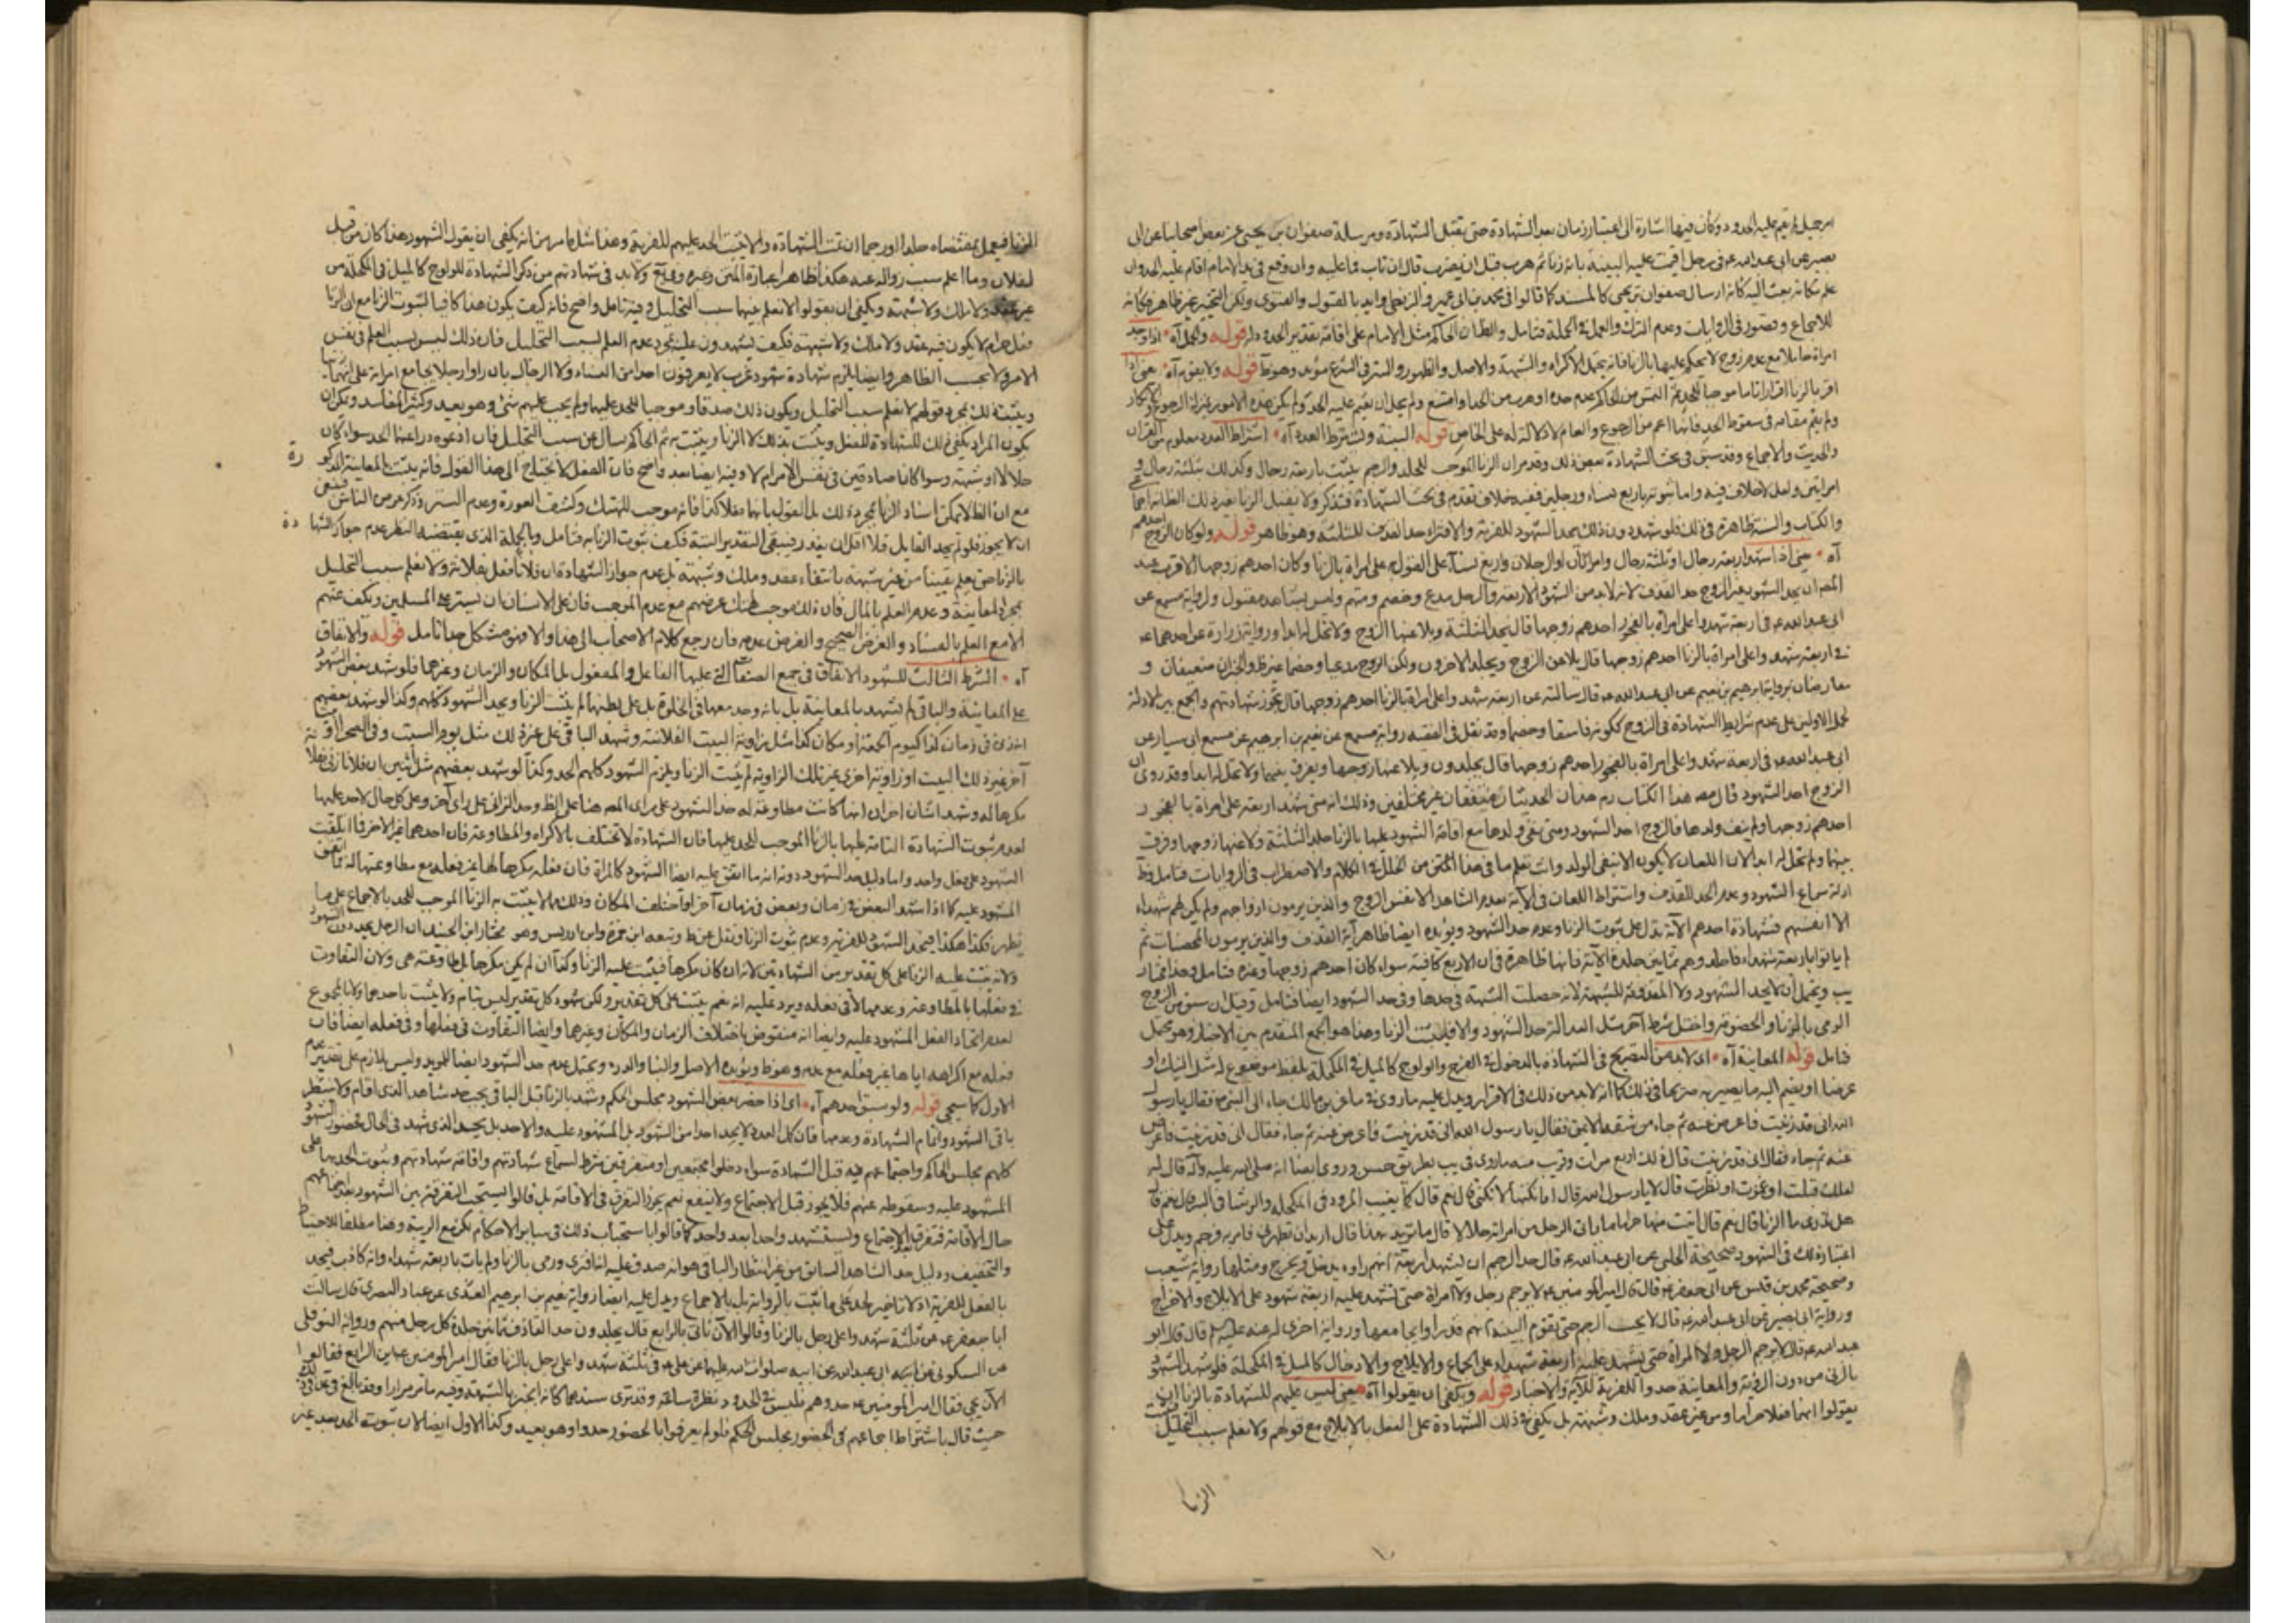 امر جميل لم يقم عليه الحدود وكأن فيها اشارة الى اعتبار زمان بعد الشهادة حتى تقبل الشهادة ومرسلة صفوان بن يحيى عن بعض اصحابنا عن ابى
بصير عن ابى عبد الله ع فى رجل اقيمت عليه البينة بانه زنا ثم هرب قبل ان يضرب قال ان تاب فما عليه وان وقع فى يد الامام اقام عليه الحد وان
علم مكانه بعث اليه كأنه ارسال صفوان بن يحيى كالمسند كما قالوا فى محمد بن ابى عمير وايد بالقبول والفتوى ولكن التخيير غير ظاهر وكأنه
للاجماع وقصور فى الروايات وعدم الترك والعمل فى الجملة فتامل والظ ان الحاكم مثل الامام على اقامته بقدر الحدود له قوله والحمل آه اذا وجد
امراة حاملا مع عدم زوج لا يحكم عليها بالزنا فانه يحتمل الاكراه والشبهة والاصل والظهور والستر فى الشرع مؤيد وهو ظ قوله ولا يقوم آه يعنى اذا
اقر بالزنا اقرارا تاما موجبا للحد ثم التمس من الحاكم عدم حده او هرب من الحد او امتنع ولم يخل ان يقيم عليه الحد ولم يكن هذه الامور بمنزلة الرجوع والانكار
ولم يقم مقامه فى سقوط الحد فانها اعم من الرجوع والعام لا دلالة له على الخاص قوله البينة ويشترط العدد آه اشتراط العدد معلوم من القرآن
والحديث والاجماع وقد سبق فى بحث الشهادة بعض ذلك وقد مر ان الزنا الموجب للجلد والرجم يثبت باربعة رجال وكذلك بثلثة رجال و
امراتين ولعل لا خلاف فيه واما ثبوته باربع نساء ورجلين ففيه خلاف تقدم فى بحث الشهادة فتذكر ولا يقبل الزنا بغير ذلك
والكتاب والسنة ظاهرة فى ذلك فلو شهد دون ذلك يحد الشهود للفرية والافتراء حد القذف للثلثة وهو ظاهر قوله ولو كان الزوج احدهم
آه يعنى اذا شهد اربعة رجال او ثلثة رجال وامراتان او رجلان واربع نساء على القول على امراة بالزنا وكان احدهم زوجها الاقرب عند
المص ان يحد الشهود بغير الزوج حد القذف لانه لا بد من الشهود الاربعة والرجل مدع وخصم ومتهم وليس بشاهد مقبول ولرواية مسمع عن
ابى عبد الله ع فى اربعة شهدوا على امراة بالفجور احدهم زوجها قال يحد الثلثة ويلاعنها الزوج ولا تحل له ابدا ورواية زرارة عن احدهما ع
فى اربعة شهدوا على امراة بالزنا احدهم زوجها قال يلاعن الزوج ويجلد الاخرون ولكن الزوج مدعيا وخصما غير ظ والخبران ضعيفان و
معارضان برواية ابرهيم بن نعيم عن ابى عبد الله ع قال سالته عن اربعة شهدوا على امراة بالزنا احدهم زوجها قال تجوز شهادتهم والجمع بين الادلة
لحمل الاولين على عدم شرايط الشهادة فى الزوج ككونه فاسقا وخصما وقد نقل فى الفقيه رواية مسمع عن نعيم بن ابرهيم عن مسمع ابى سيار عن
ابى عبد الله ع فى اربعة شهدوا على امراة بالفجور احدهم زوجها قال يجلدون ويلاعنها زوجها ويفرق بينهما ولا تحل له ابدا وقد روى ان
الزوج احد الشهود قال مصنف هذا الكتاب ره هذان الحديثان متفقان غير مختلفين وذلك انه متى شهد اربعة على امراة بالفجور
احدهم زوجها ولم ينف ولدها فالزوج احد الشهود ومتى نفى ولدها مع اقامة الشهود عليها بالزنا جلد الثلثة ولاعنها زوجها وفرقت
بينهما ولم تحل له ابدا لان اللعان لا يكون الا بنفى الولد وانت تعلم ما فى هذا المتن من الخلل فى الكلام والاضطراب فى الروايات فتامل وظ
ادلة سماع الشهود وعدم الحد للقذف واشتراط اللعان فى الآية بعدم الشاهد الا نفس الزوج والذين يرمون ازواجهم ولم يكن لهم شهداء
الا انفسهم فشهادة احدهم الآية تدل على ثبوت الزنا وعدم حد الشهود ويؤيده ايضا ظاهر آية القذف والذين يرمون المحصنات ثم
لم ياتوا باربعة شهداء فاجلدوهم ثمانين جلدة الآية فانها ظاهرة فى ان الاربع كافية سواء كان احدهم زوجها وغيره فتامل وهذا مختار
يب ويحتمل ان لا يحد الشهود ولا المقذوفة للشبهة لانه حصلت الشبهة فى حدها وفى حد الشهود ايضا فتامل وقيل ان سبق من الزوج
الرمى بالزنا والخصومة واختل شرط آخر مثل العدالة حد الشهود والا فيثبت الزنا وهذا هو الجمع المتقدم بين الاخبار وهو محمل
فتامل قوله المعاينة آه اى لا بد من التصريح فى الشهادة بالدخول فى الفرج والولوج كالميل فى المكحلة بلفظ موضوع له مثل النيك او
عرضا او يضم اليه ما يصير به صريحا فى ذلك كما انه لا بد من ذلك فى الاقرار ويدل عليه ما روى فى ماعز بن مالك جاء الى النبى ص فقال يا رسول
الله انى قد زنيت فاعرض عنه ثم جاء من شقه الايمن فقال يا رسول الله انى قد زنيت فاعرض عنه ثم جاء فقال انى قد زنيت فاعرض
عنه ثم جاء فقال انى قد زنيت قال ذلك اربع مرات وقريب منه ما روى فى يب بطريق حسن وروى ايضا انه صلى الله عليه وآله قال له
لعلك قبلت او غمزت او نظرت قال لا يا رسول الله قال انكتها لا تكنى قال نعم قال كما يغيب المرود فى المكحلة والرشا فى البئر قال نعم قال
هل تدرى ما الزنا قال نعم قال اتيت منها حراما ما ياتى الرجل من امراته حلالا قال ما تريد بهذا قال اريد ان تطهرنى فامر به فرجم ويدل على
اعتبار ذلك فى الشهود صحيحة الحلبى عن ابى عبد الله ع قال حد الرجم ان يشهد اربعة انهم راوه يدخل ويخرج ومثلها رواية شعيب
وصحيحة محمد بن قيس عن ابى جعفر ع قال قال امير المؤمنين ع لا يرجم رجل ولا امراة حتى تشهد عليه اربعة شهود على الايلاج والاخراج
ورواية ابى بصير عن ابى عبد الله ع قال لا يجب الرجم حتى يقوم البينة انهم قد راوا يجامعها ورواية اخرى له عنه عليه السلم قال قال ابو
عبد الله ع قال لا يرجم الرجل ولا المراة حتى يشهد عليه اربعة شهداء على الجماع والايلاج والادخال كالميل فى المكحلة فلو شهد الشهود
بالزنى من دون الرؤية والمعاينة حدوا للفرية للآية والاخبار قوله ويكفى ان يقولوا آه يعنى ليس عليهم للشهادة بالزنا ان
يقولوا انهما فعلا حراما ومن غير عقد وملك وشبهة بل يكفى فى ذلك الشهادة على الفعل بالايلاج مع قولهم ولا نعلم سبب التحليل
الزنا
الزنا فيعمل بمقتضاه جلدا او رجما ان تمت الشهادة والا يثبت الحد عليهم للفرية وهذا مثل ما مر من انه يكفى ان يقول الشهود هذا كان من قبل
لفلان وما اعلم سبب زواله عنه هكذا ظاهر عبارة المتن وغيره ولا بد فى شهادتهم من ذكر الشهادة للولوج كالميل فى المكحلة من
غير عقد ولا ملك ولا شبهة ويكفى ان يقولوا لا نعلم بينهما سبب التحليل وفيه تامل واضح فانه كيف يكون هذا كافيا لثبوت الزنا مع ان الزنا
فعل حرام لا يكون فيه عقد ولا ملك ولا شبهة فكيف يشهدون عليه بمجرد عدم العلم بسبب التحليل فان ذلك ليس بسبب العلم فى نفس
الامر ولا بحسب الظاهر وايضا يلزم شهادة شهود غرب لا يعرفون احدا من النساء ولا الرجال بان راوا رجلا يجامع امراة على انهما
ويثبت ذلك بمجرد قولهم لا نعلم سبب التحليل ويكون ذلك صدقا وموجبا للحد عليهما ولم يجب عليهم شئ وهو بعيد وكثير المفاسد ويمكن ان
يكون المراد يكفى ذلك للشهادة للفعل ويثبت بذلك لا الزنا ويثبت به ثم الحاكم يسال عن سبب التحليل فان ادعوه دراعنهما الحد سواء كان
حلالا او شبهة وسواء كانا صادقين فى نفس الامر ام لا وفيه ايضا بعد واضح فان الفعل لا يحتاج الى هذا القول فانه يثبت بالمعاينة المذكورة
مع ان الظ لا يمكن اسناد الزنا بمجرد ذلك بل القول بانهما فعلا كذا فانه موجب للهتك وكشف العورة وعدم الستر وذكر عرض الناس فينبغى
ان لا يجوز فلو لم يحد القايل فلا اقل ان يعزر فيبقى التقدير فكيف ثبوت الزنا به فتامل وبالجملة الذى يقتضيه النظر عدم جواز الشهادة
بالزنا حتى يعلم يقينا من غير شبهة بانتفاء عقد وملك وشبهة بل عدم جواز الشهادة ان فلانا فعل بفلانة ولا نعلم سبب التحليل
بمجرد المعاينة وعدم العلم بالمال فان ذلك موجب لهتك عرضهم مع عدم الموجب فان على الانسان ان يستر على المسلمين ويكف عنهم
الا مع العلم بالفساد والغرض الصحيح والفرض عدمه فان رجع كلام الاصحاب الى هذا والا فهو مشكل جدا تامل قوله والاتفاق
آه الشرط الثالث للشهود الاتفاق فى جميع الصفات التى عليها الفاعل والمفعول بل المكان والزمان وغيرهما فلو شهد بعض الشهود
على المعاينة والباقى لم يشهد بالمعاينة بل بانه وجد معها فى الخلوة بل على بطنها لم يثبت الزنا ويحد الشهود كلهم وكذا لو شهد بعضهم
انه زنى فى زمان كذا كيوم الجمعة او مكان كذا مثل زاوية البيت الفلانية وشهد الباقى على غير ذلك مثل يوم السبت وفى الصحراء او بيت
آخر غير ذلك البيت او زاوية اخرى غير تلك الزاوية لم يثبت الزنا ويلزم الشهود كلهم الحد وكذا لو شهد بعضهم مثل اثنين ان فلانا زنى بفلانة
مكرها لها وشهد اثنان اخران انها كانت مطاوعة له حد الشهود على راى المص هنا على الظ وحد الزانى على راى آخر وعلى كل حال لا حد عليها
لعدم ثبوت الشهادة التامة عليها بالزنا الموجب للحد عليها فان الشهادة لا تختلف بالاكراه والمطاوعة فان احدهما غير الاخر فما اتفقت
الشهود على فعل واحد واما دليل حد الشهود دونه انه ما اتفق عليه ايضا الشهود كالمراة فان فعله مكرها لها غير فعله مع مطاوعتها له فما اتفق
المشهود عليه كما اذا شهد البعض فى زمان وبعض فى زمان آخر او اختلف المكان وذلك مما لا يثبت به الزنا الموجب للحد بالاجماع على ما
يظهر فكذا هكذا فيحد الشهود للفرية وعدم ثبوت الزنا ونقل عن ط وتبعه ابن حمزة وابن ادريس وهو مختار ابن الجنيد ان الرجل يحد دون الشهود
ولانه يثبت عليه الزنا على كل تقدير من الشهادتين لانه ان كان مكرها فيثبت عليه الزنا وكذا ان لم يكن مكرها بل طاوعته هى ولان التفاوت
فى فعلها بالمطاوعة وعدمها لا فى فعله ويرد عليه انه نعم يثبت على كل تقدير ولكن شهود كل تقدير ليس بتام ولا يثبت باحدهما ولا بالمجموع
لعدم اتحاد الفعل المشهود عليه وايضا انه منقوض باختلاف الزمان والمكان وغيرهما وايضا التفاوت فى فعلها وفى فعله ايضا فان
فعله مع اكراهه اياها غير فعله مع عدمه وهو ظ ويؤيده الاصل والبناء والدرء ويحتمل عدم حد الشهود ايضا للمؤيد وليس بلازم على تقدير عدم
الاول كما سيجئ قوله ولو سبق احدهم آه اى اذا حضر بعض الشهود مجلس الحكم وشهد بالزنا قبل الباقى يجب حد شاهد الذى اقام ولا ينتظر
باقى الشهود واتمام الشهادة وعدمها فان كمل العدد لا يحد احدا من الشهود بل المشهود عليه والا حد بل يحد الذى شهد فى الحال فحضور الشهود
كلهم مجلس الحاكم واجتماعهم فيه قبل الشهادة سواء دخلوا مجتمعين او متفرقين شرط لسماع شهادتهم واقامة شهادتهم وثبوت الحد بها على
المشهود عليه وسقوطه عنهم فلا يجوز قبل الاجتماع ولا ينفع نعم يجوز التفرق فى الاقامة بل قالوا يستحب التفرقة بين الشهود بعد اجتماعهم
حال الاقامة فتفرق بعد الاجتماع ويستشهد واحدا بعد واحد كما قالوا باستحباب ذلك فى ساير الاحكام لكن مع الريبة وهنا مطلقا للاحتياط
والتخفيف ودليل حد الشاهد السابق من غير انتظار الباقى هو انه صدق عليه انه افترى ورمى بالزنا ولم يات باربعة شهداء وانه كاذب فيحد
بالفعل للفرية اذ لا تاخير لحد على ما ثبت بالرواية بل بالاجماع ويدل عليه ايضا رواية نعيم بن ابراهيم العبدى عن عباد البصرى قال سالت
ابا جعفر ع عن ثلثة شهدوا على رجل بالزنا وقالوا الآن ناتى بالرابع قال يجلدون حد القاذف ثمانين جلدة كل رجل منهم ورواية النوفلى
عن السكونى عن ابى عبد الله عن ابيه صلوات الله عليهما عن على ع فى ثلثة شهدوا على رجل بالزنا فقال امير المؤمنين ع اين الرابع فقالوا
الآن يجئ فقال امير المؤمنين ع حدوهم فليس فى الحدود نظرة ساعة وقد ترى سندهما كانه انجبر بالشهرة وفيه ما مر مرارا وقد بالغ فى ذلك
حيث قال باشتراط اجتماعهم فى الحضور بمجلس الحكم فلو لم يعرفوا بالحضور حدوا وهو بعيد وكذا الاول ايضا لان ثبوت الحد بعد غير